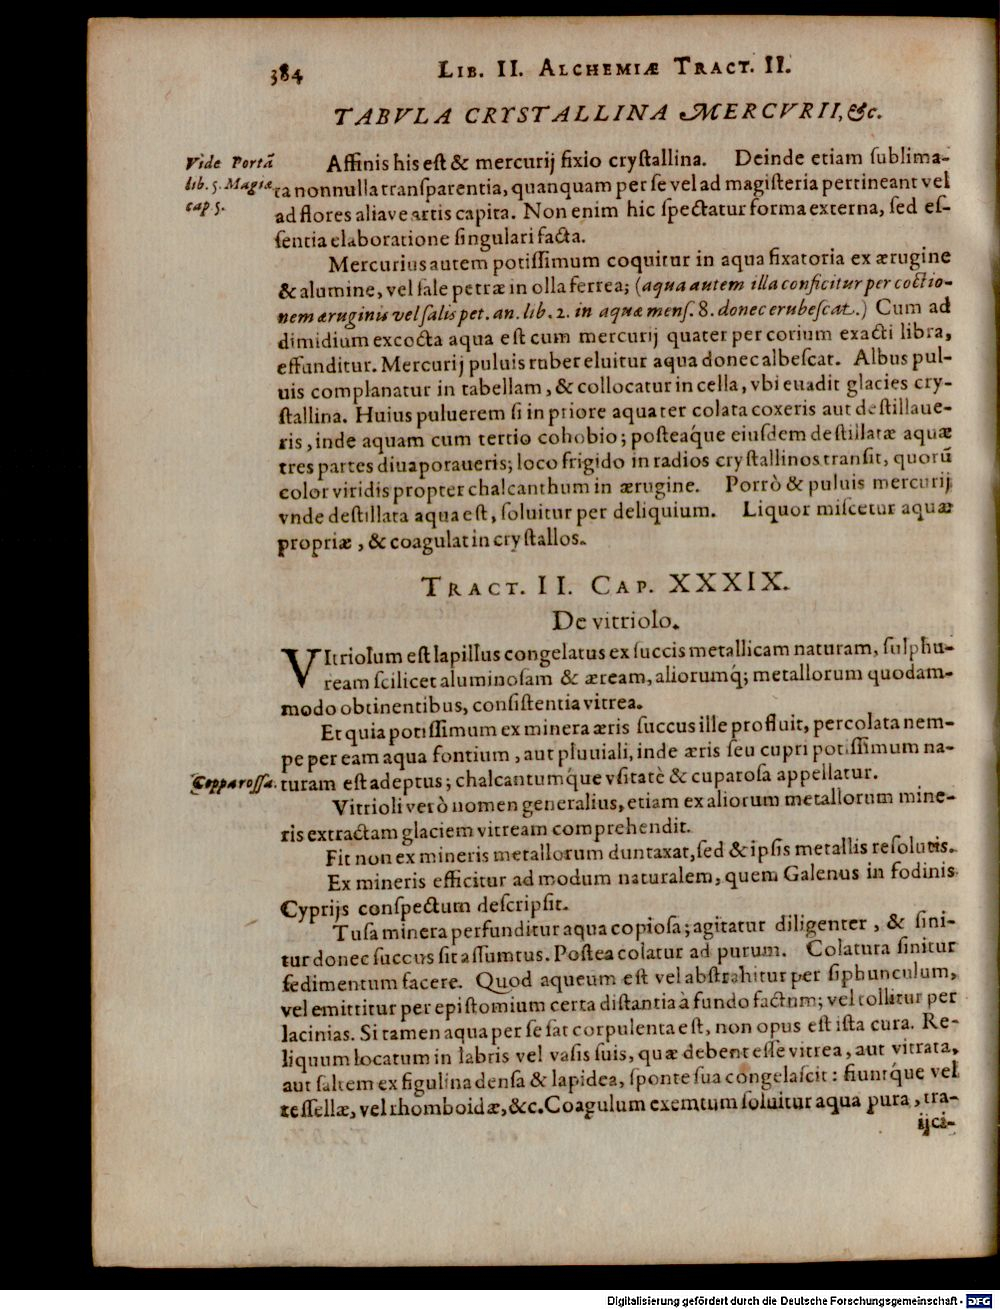 384
LIB. II. ALCHEMIÆ TRACT. II.
TABVLA CRYSTALLINA MERCVRII, &c.
Vide Portã
lib. 5. Magiæ
cap 5.
Affinis his est & mercurij fixio crystallina. Deinde etiam sublima-
ta nonnulla transparentia, quanquam per se vel ad magisteria pertineant vel
ad flores aliave artis capita. Non enim hic spectatur forma externa, sed es-
sentia elaboratione singulari facta.
Mercurius autem potissimum coquitur in aqua fixatoria ex ærugine
& alumine, vel sale petræ in olla ferrea; (aqua autem illa conficitur per coctio-
nem æruginis vel salis pet. an. lib. 2. in aquæ mens. 8. donec erubescat.) Cum ad
dimidium excocta aqua est cum mercurij quater per corium exacti libra,
effunditur. Mercurij puluis ruber eluitur aqua donec albescat. Albus pul-
uis complanatur in tabellam, & collocatur in cella, vbi euadit glacies cry-
stallina. Huius puluerem si in priore aqua ter colata coxeris aut destillaue-
ris, inde aquam cum tertio cohobio; posteáque eiusdem destillatæ aquæ
tres partes diuaporaueris; loco frigido in radios crystallinos transit, quorũ
color viridis propter chalcanthum in ærugine. Porrò & puluis mercurij
vnde destillata aqua est, soluitur per deliquium. Liquor miscetur aquæ
propriæ, & coagulat in crystallos.
TRACT. II. CAP. XXXIX.
De vitriolo.
VItriolum est lapillus congelatus ex succis metallicam naturam, sulphu-
ream scilicet aluminosam & æream, aliorumq́; metallorum quodam-
modo obtinentibus, consistentia vitrea.
Et quia potissimum ex minera æris succus ille profluit, percolata nem-
pe per eam aqua fontium, aut pluuiali, inde æris seu cupri potissimum na-
Copparossa. turam est adeptus; chalcantumq́ue vsitatè & cuparosa appellatur.
Vitrioli verò nomen generalius, etiam ex aliorum metallorum mine-
ris extractam glaciem vitream comprehendit.
Fit non ex mineris metallorum duntaxat, sed & ipsis metallis resolutis.
Ex mineris efficitur ad modum naturalem, quem Galenus in fodinis
Cyprijs conspectum descripsit.
Tusa minera perfunditur aqua copiosa; agitatur diligenter, & sini-
tur donec succus sit assumtus. Postea colatur ad purum. Colatura sinitur
sedimentum facere. Quod aqueum est vel abstrahitur per siphunculum,
vel emittitur per epistomium certa distantia à fundo factum; vel tollitur per
lacinias. Si tamen aqua per se sat corpulenta est, non opus est ista cura. Re-
liquum locatum in labris vel vasis suis, quæ debent esse vitrea, aut vitrata,
aut saltem ex figulina densa & lapidea, sponte sua congelascit: fiuntq́ue vel
tessellæ, vel rhomboidæ, &c. Coagulum exemtum soluitur aqua pura, tra-
ijci-
Digitalisierung gefördert durch die Deutsche Forschungsgemeinschaft - DFG